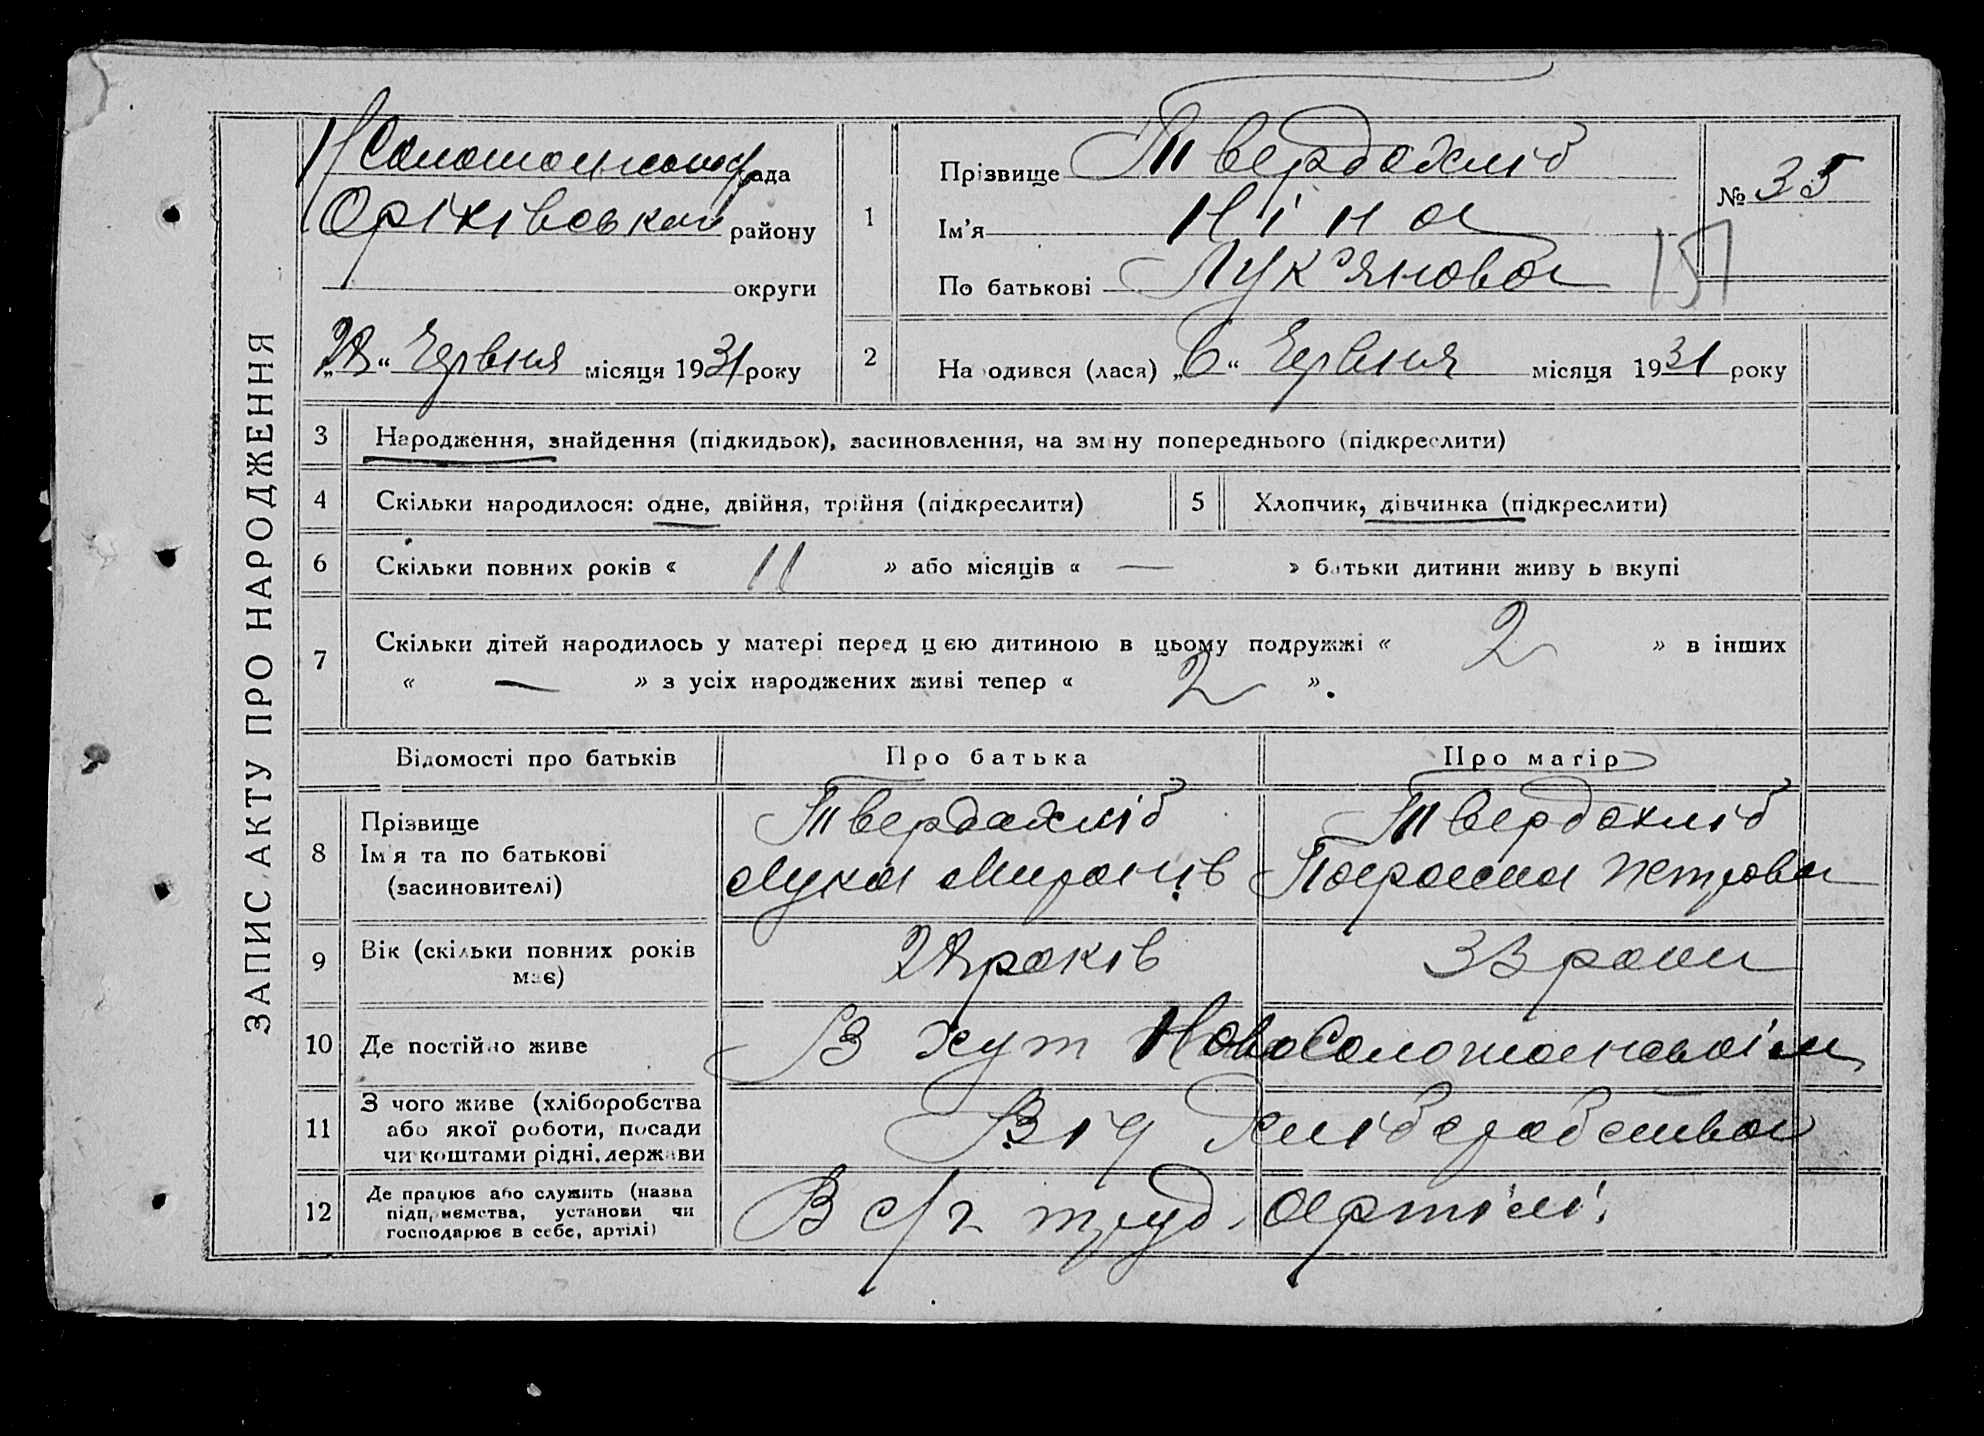 ЗАПИС АКТУ ПРО НАРОДЖЕННЯ
рада
Оріхівського району
округи
28 „ Червня місяця 1931 року
1
Прізвище Твердохліб
Ім'я Ніна
По батькові Лук'янова
№ 35
151
2
Народився (лася) „6“ Червня місяця 1931 року
3 Народження, знайдення (підкидьок), засиновлення, на зміну попереднього (підкреслити)
4 Скільки народилося: одне, двійня, трійня (підкреслити)
5 Хлопчик, дівчинка (підкреслити)
6 Скільки повних років « 11 » або місяців « — » батьки дитини живуть вкупі
7 Скільки дітей народилось у матері перед цією дитиною в цьому подружжі « 2 » в інших
« — » з усіх народжених живі тепер « 2 ».
Відомості про батьків Про батька Про матір
8 Прізвище
Ім'я та по батькові
(засиновителі)
Твердохліб
Лука Миронів
Твердохліб
Параска Петрова
9 Вік (скільки повних років
має)
28 років
33 роки
10 Де постійно живе
В хут Ново
11 З чого живе (хліборобства
або якої роботи, посади
чи коштами рідні, держави
Від хліборобства
12 Де працює або служить (назва
підприємства, установи чи
господарює в себе, артілі)
В с/г труд. Артілі.